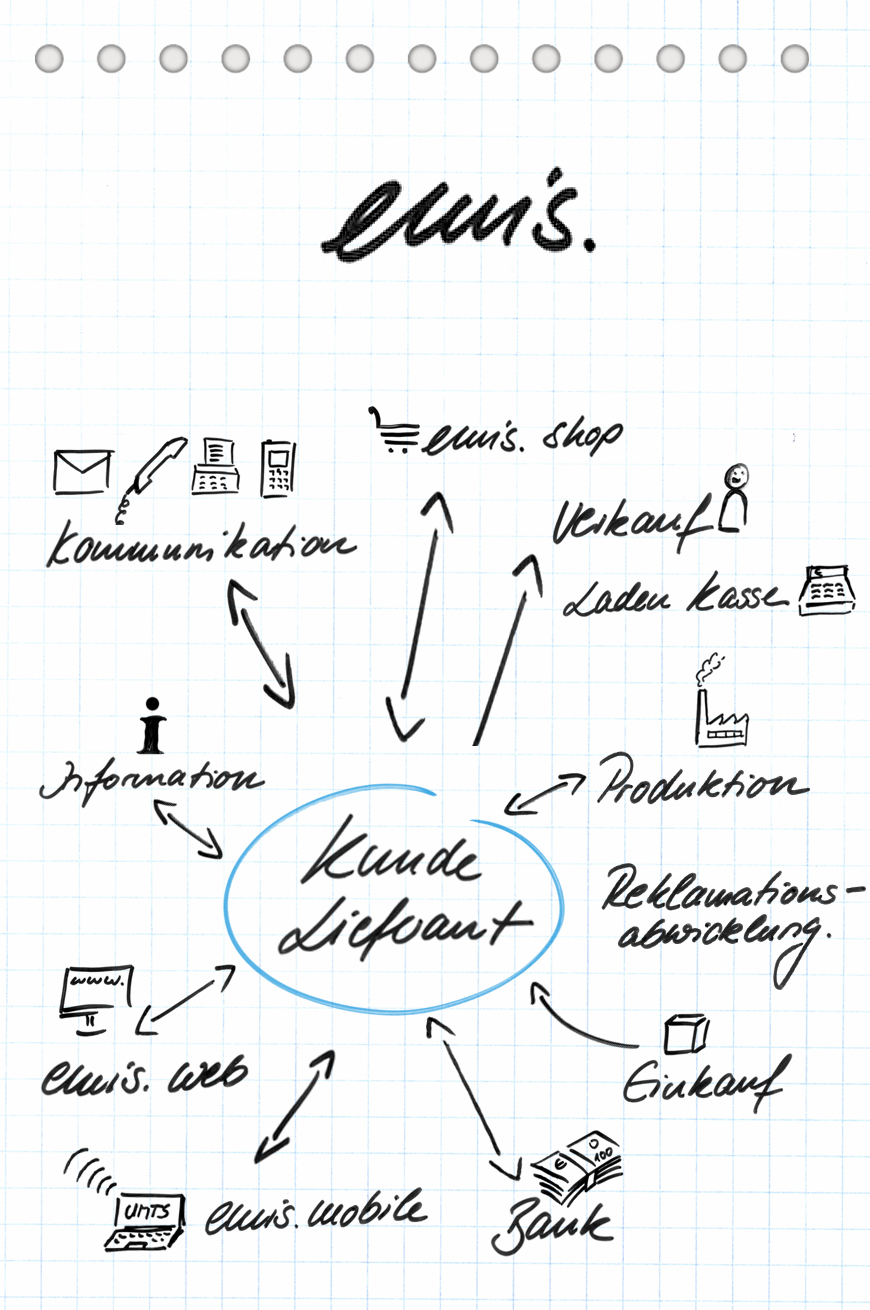 emis.
emis. shop
Kommunikation
Verkauf
Laden Kasse
i
Information
Produktion
Kunde
Lieferant
Reklamations-
abwicklung.
www.
emis. web
Einkauf
€
100
UMTS
emis. mobile
Bank